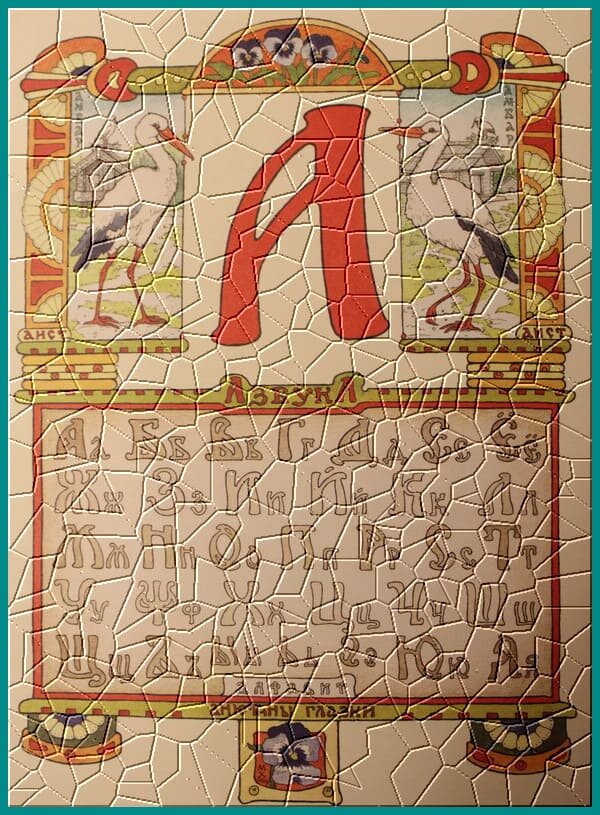 АМБАР
АМБАР
А
АИСТ
АИСТ
АЗБУКА
Аа Бб Вв Гг Дд Ее Ёё
Жж Зз Ии Йй Кк Лл
Мм Нн Оо Пп Рр Сс Тт
Уу Фф Хх Цц Чч Шш
Щщ Ъъ Ыы Ьь Ээ Юю Яя
АНЮТИНЫ ГЛАЗКИ